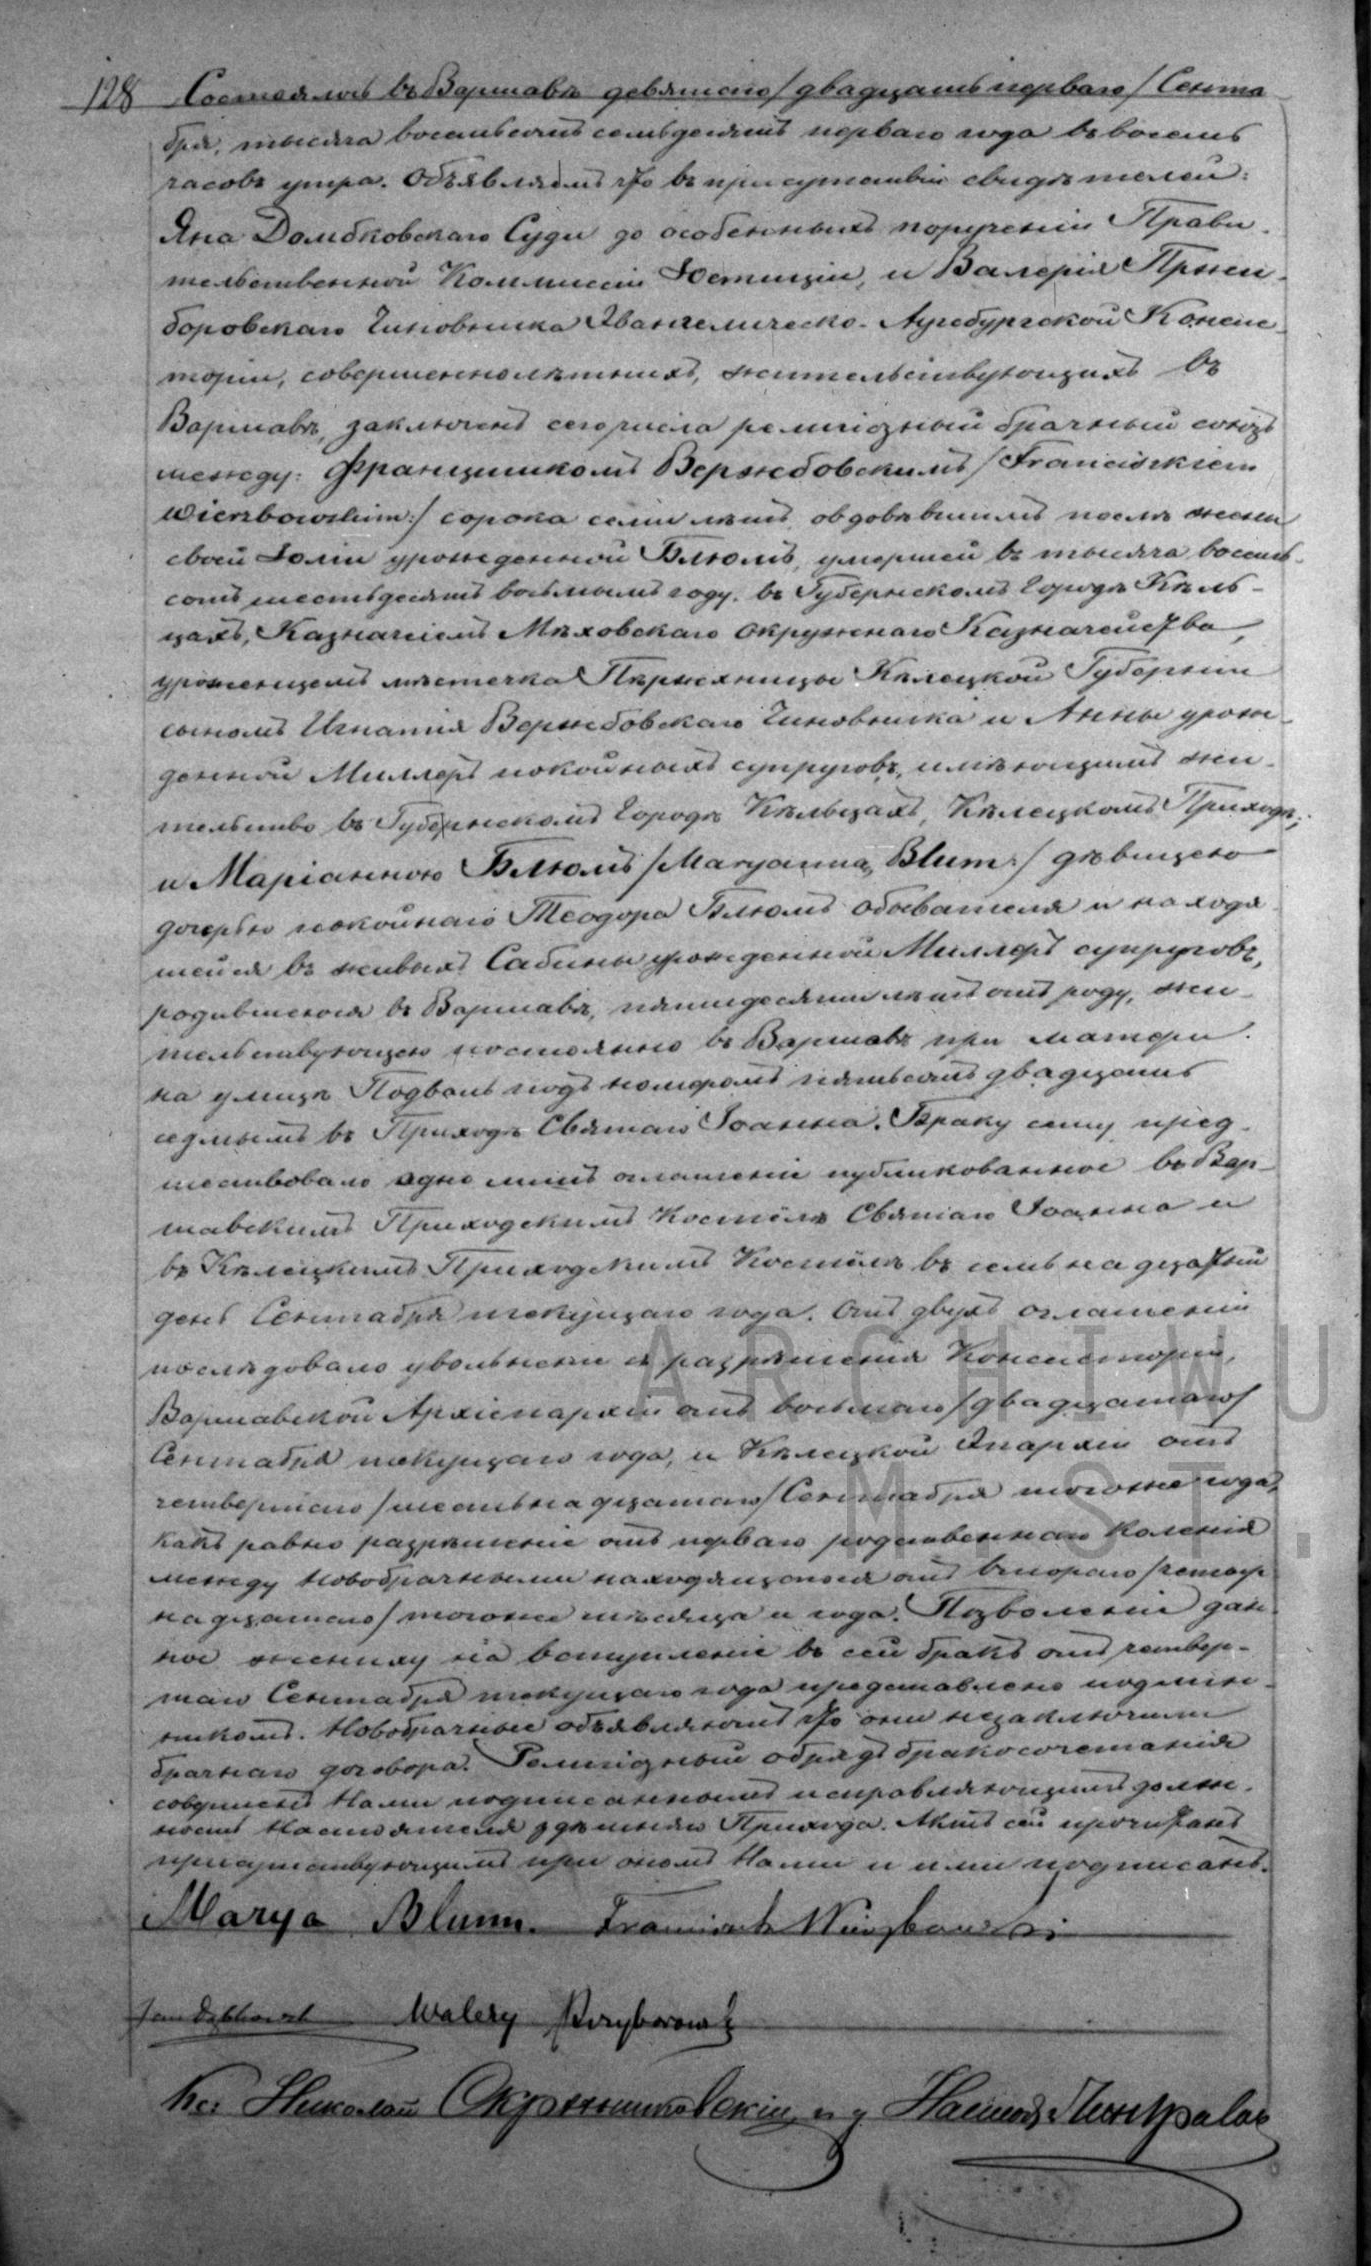 128 Состоялось въ Варшавѣ девятаго/двадцать перваго/Сентя
бря, тысяча восемьсотъ семьдесятъ перваго года въ восемь
часовъ утра. Объявляемъ что въ присутствіи свидѣтелей:
Яна Домбковскаго Судьи до особенныхъ порученій Прави-
тельственной Коммиссіи Юстиціи, и Валерія Пржи-
боровскаго Чиновника Евангелическо-Аугсбургской Консис-
торіи, совершеннолѣтнихъ, жительствующихъ въ
Варшавѣ, заключенъ сего числа религіозный брачный союзъ
между: Францишкомъ Вержбовскимъ/Franciszkiem
Wierzbowskim:/ сорока семи лѣтъ, овдовѣвшимъ послѣ жены
своей Юліи урожденной Блюмъ, умершей въ тысяча восемь-
сотъ шестьдесятъ восьмомъ году, въ Губернскомъ Городѣ Кѣль-
цахъ, Казначеемъ Мѣховскаго Окружнаго Казначейства,
уроженцемъ мѣстечка Пержхницы Кѣлецкой Губерніи
сыномъ Игнатія Вержбовскаго Чиновника и Анны урож-
денной Миллеръ покойныхъ супруговъ, имѣющимъ жи-
тельство въ Губернскомъ Городѣ Кѣльцахъ, Кѣлецкомъ Приходѣ;
и Маріанною Блюмъ/Maryanną Blum:/ дѣвицею
дочерью покойнаго Теодора Блюмъ обывателя и находя
щейся въ живыхъ Сабины урожденной Миллеръ супруговъ,
родившеюся въ Варшавѣ, пятидесяти лѣтъ отъ роду, жи-
тельствующею постоянно въ Варшавѣ при матери
на улицѣ Подваль подъ номеромъ пятьсотъ двадцать
седмымъ въ Приходѣ Святаго Іоанна. Браку сему пред-
шествовало одно лишь оглашеніе публикованное въ Вар-
шавскимъ Приходскимъ Костёлѣ Святаго Іоанна и
въ Кѣлецкимъ Приходскимъ Костёлѣ въ семьнадцатый
день Сентября текущаго года. Отъ двухъ оглашеній
послѣдовало увольненіе и разрѣшенія Консисторіи,
Варшавской Архіепархіи отъ восьмаго/двадцатаго/
Сентября текущаго года, и Кѣлецкой Епархіи отъ
четвертаго/шестьнадцатаго/Сентября тогоже года,
какъ равно разрѣшеніе отъ перваго родственнаго колѣнія
между Новобрачными находящагося отъ втораго/четыр
надцатаго/тогоже мѣсяца и года. Позволеніе дан-
ное жениху на вступленіе въ сей бракъ отъ четвер-
таго Сентября текущаго года представлено подлин-
никомъ. Новобрачные объявляютъ что они незаключили
брачнаго договора. Религіозный обрядъ бракосочетанія
совершенъ Нами подписаннымъ исправляющимъ долж-
ность Настоятеля здѣшняго Прихода. Актъ сей прочитанъ
присутствующимъ при ономъ Нами и ими подписанъ.
Marya Blum. Franciszek Wierzbowski
Jan Dąbkowski Walery Przyborowski
Кс: Николай Скржышковскій